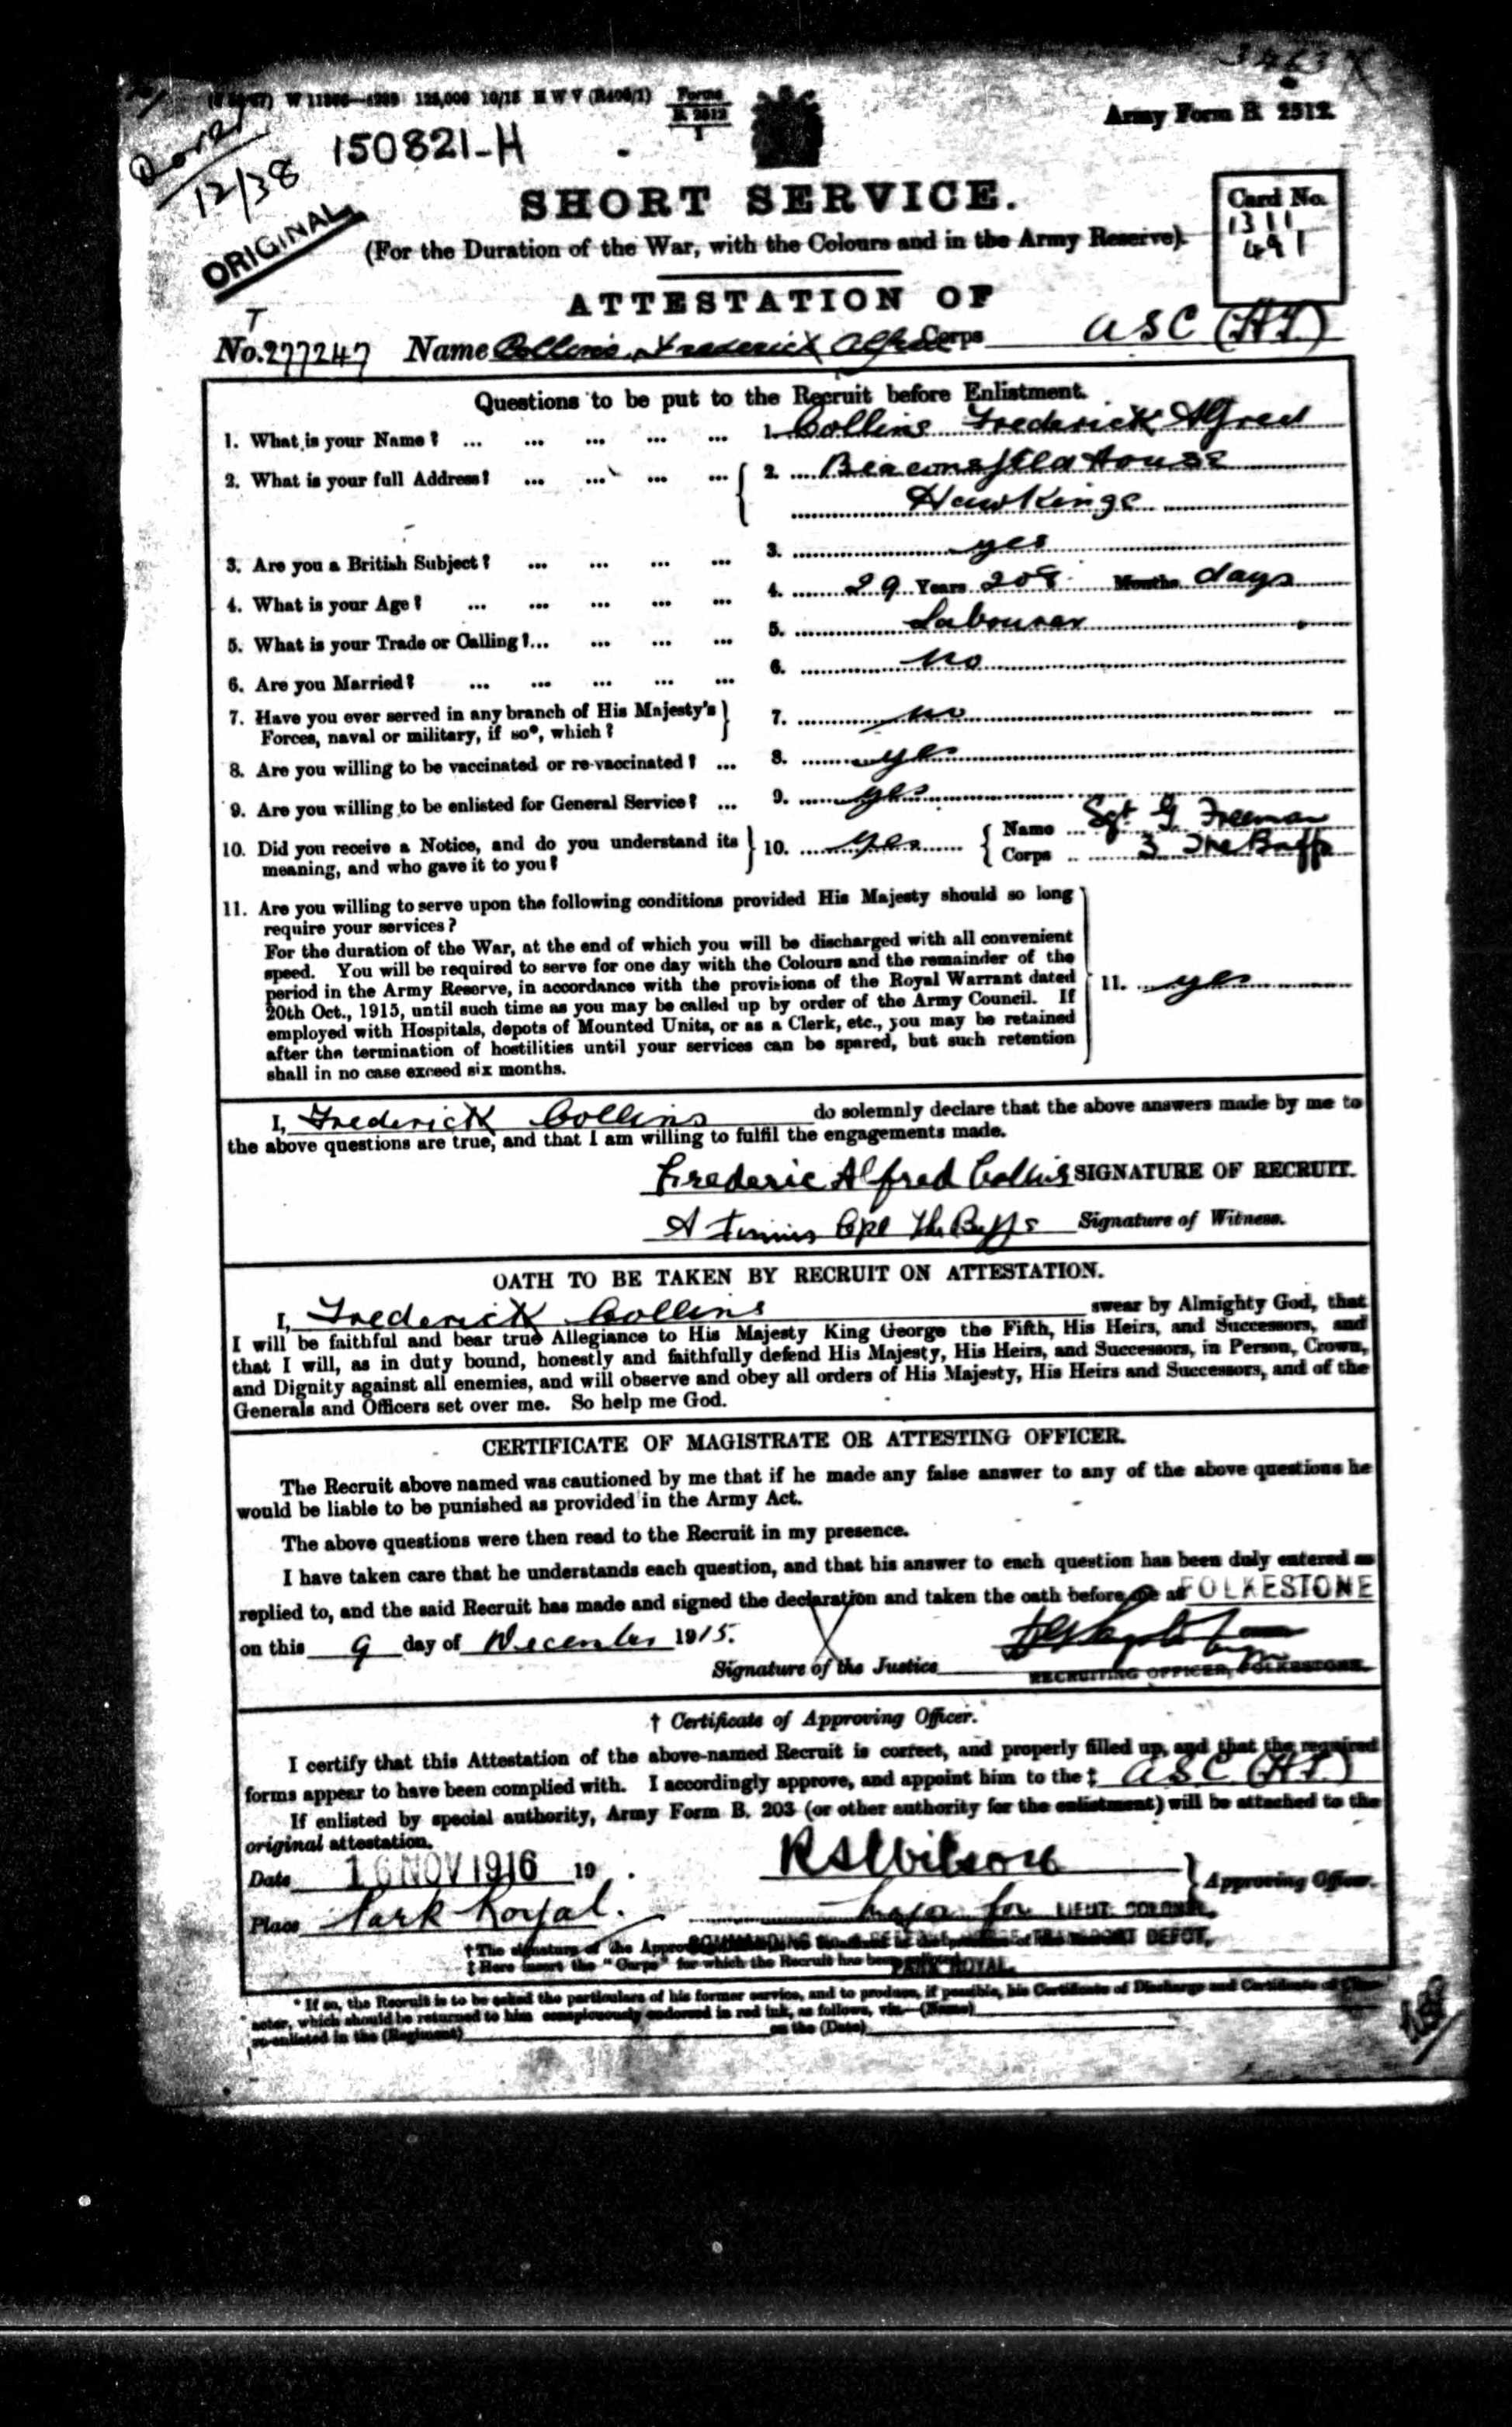 3463 X
W 11806—4209 125,000 10/15 H W V (R406/1) Forms
R. 2512
1
Army Form R 2512.
Dover
12/38
150821-H
ORIGINAL
SHORT SERVICE.
Card No.
1311
491
(For the Duration of the War, with the Colours and in the Army Reserve).
ATTESTATION OF
T
No. 277247 Name Collins Frederick Alfred Corps ASC (HT)
Questions to be put to the Recruit before Enlistment.
1. What is your Name? ... ... ... ... ... 1. Collins Frederick Alfred
2. What is your full Address? ... ... ... ... { 2. Beaconsfield House
Hawkinge
3. Are you a British Subject? ... ... ... ... 3. yes
4. What is your Age? ... ... ... ... ... 4. 29 Years 208 Months days
5. What is your Trade or Calling?... ... ... ... 5. Labourer
6. Are you Married? ... ... ... ... ... 6. No
7. Have you ever served in any branch of His Majesty's } 7. no
Forces, naval or military, if so*, which?
8. Are you willing to be vaccinated or re-vaccinated? ... 8. yes
9. Are you willing to be enlisted for General Service? ... 9. yes
10. Did you receive a Notice, and do you understand its } 10. yes { Name ... Sgt G Freeman
meaning, and who gave it to you? Corps .. 3 The Buffs
11. Are you willing to serve upon the following conditions provided His Majesty should so long
require your services?
For the duration of the War, at the end of which you will be discharged with all convenient
speed. You will be required to serve for one day with the Colours and the remainder of the
period in the Army Reserve, in accordance with the provisions of the Royal Warrant dated } 11. yes
20th Oct., 1915, until such time as you may be called up by order of the Army Council. If
employed with Hospitals, depots of Mounted Units, or as a Clerk, etc., you may be retained
after the termination of hostilities until your services can be spared, but such retention
shall in no case exceed six months.
I, Frederick Collins do solemnly declare that the above answers made by me to
the above questions are true, and that I am willing to fulfil the engagements made.
Frederic Alfred Collins SIGNATURE OF RECRUIT.
A Cpl The Buffs Signature of Witness.
OATH TO BE TAKEN BY RECRUIT ON ATTESTATION.
I, Frederick Collins swear by Almighty God, that
I will be faithful and bear true Allegiance to His Majesty King George the Fifth, His Heirs, and Successors, and
that I will, as in duty bound, honestly and faithfully defend His Majesty, His Heirs, and Successors, in Person, Crown,
and Dignity against all enemies, and will observe and obey all orders of His Majesty, His Heirs and Successors, and of the
Generals and Officers set over me. So help me God.
CERTIFICATE OF MAGISTRATE OR ATTESTING OFFICER.
The Recruit above named was cautioned by me that if he made any false answer to any of the above questions he
would be liable to be punished as provided in the Army Act.
The above questions were then read to the Recruit in my presence.
I have taken care that he understands each question, and that his answer to each question has been duly entered as
replied to, and the said Recruit has made and signed the declaration and taken the oath before me at FOLKESTONE
on this 9 day of December 1915.
Signature of the Justice
RECRUITING OFFICER, FOLKESTONE.
† Certificate of Approving Officer.
I certify that this Attestation of the above-named Recruit is correct, and properly filled up, and that the required
forms appear to have been complied with. I accordingly approve, and appoint him to the ‡ ASC (HT)
If enlisted by special authority, Army Form B. 203 (or other authority for the enlistment) will be attached to the
original attestation.
Date 16 NOV 1916 19 . RSWilson } Approving Officer.
Place Park Royal. Major for LIEUT. COLONEL,
COMMANDING TRANSPORT DEPOT,
†The signature of the
‡ Here insert the "Corps" for which the Recruit has been
PARK ROYAL.
* If so, the Recruit is to be asked the particulars of his former service, and to produce, if possible, his Certificate of Discharge and Certificate of Char-
acter, which should be returned to him conspicuously endorsed in red ink, as follows, viz.—(Name)
re-enlisted in the (Regiment) on the (Date)